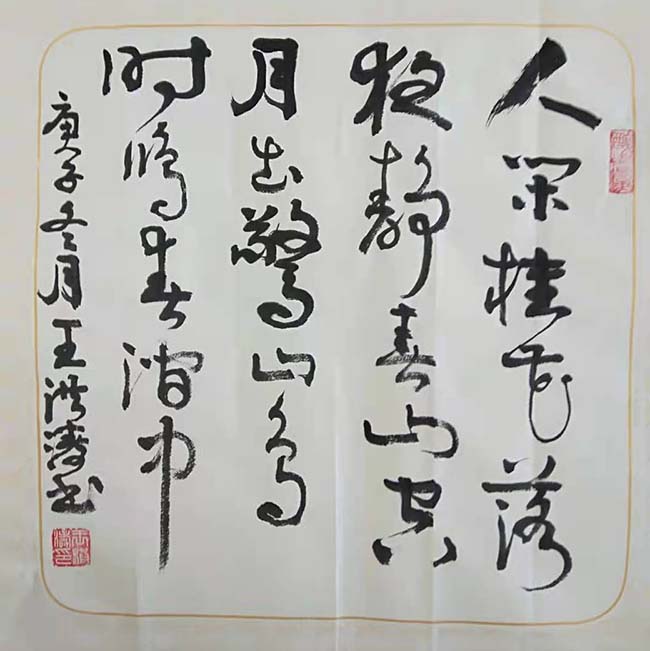 人闲桂花落
夜静春山空
月出驚山鸟
时鸣春涧中
庚子冬月王洪涛书